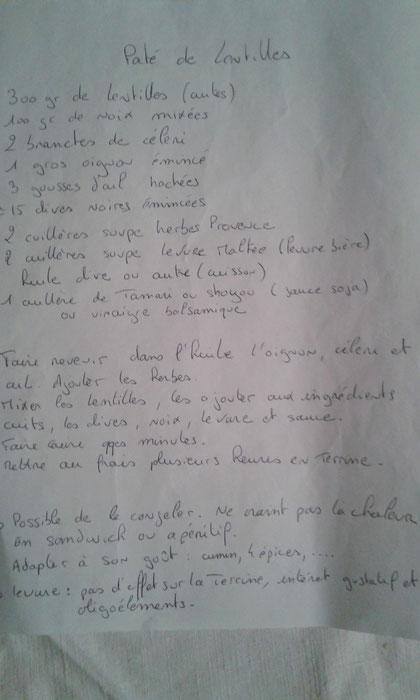 Paté de Lentilles
300 gr de lentilles (cuites)
100 gr de noix mixées
2 branches de céleri
1 gros oignon émincé
3 gousses d'ail hachées
15 olives noires émincées
2 cuillères soupe herbes Provence
2 cuillères soupe levure Maltée (levure bière)
Huile olive ou autre (cuisson)
1 cuillère de Tamari ou shoyou (sauce soja)
ou vinaigre balsamique
Faire revenir dans l'huile l'oignon, céleri et
ail. Ajouter les herbes.
Mixer les lentilles, les ajouter aux ingrédients
cuits, les olives, noix, levure et sauce.
Faire cuire qqes minutes.
Mettre au frais plusieurs heures en Terrine.
Possible de le congeler. Ne craint pas la chaleur
En sandwich ou apéritif.
Adapter à son goût : cumin, 4 épices, ....
levure : pas d'effet sur la Terrine, intéret gustatif et
oligoéléments.